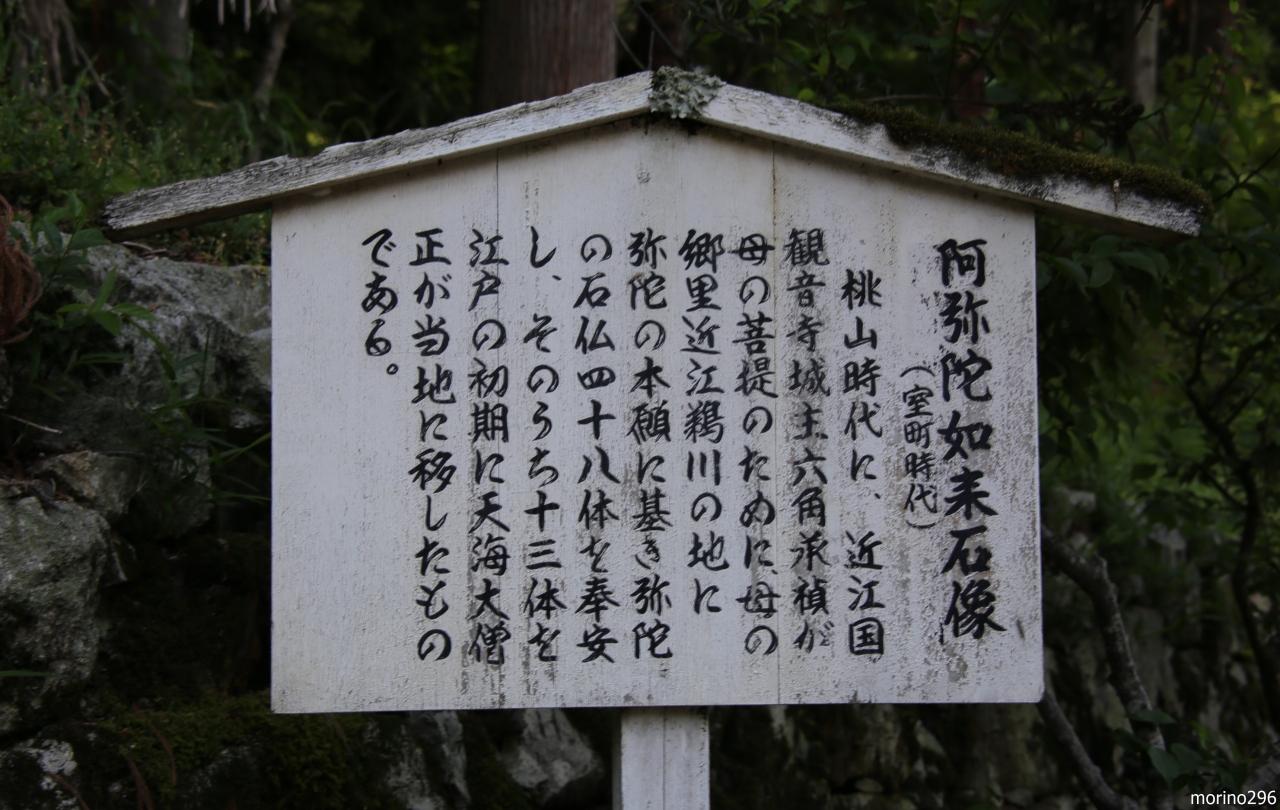 阿弥陀如来石像
（室町時代）
桃山時代に、近江国
観音寺城主六角承禎が
母の菩提のために、母の
郷里近江鵜川の地に
弥陀の本願に基き弥陀
の石仏四十八体を奉安
し、そのうち十三体を
江戸の初期に天海大僧
正が当地に移したもの
である。
morino296